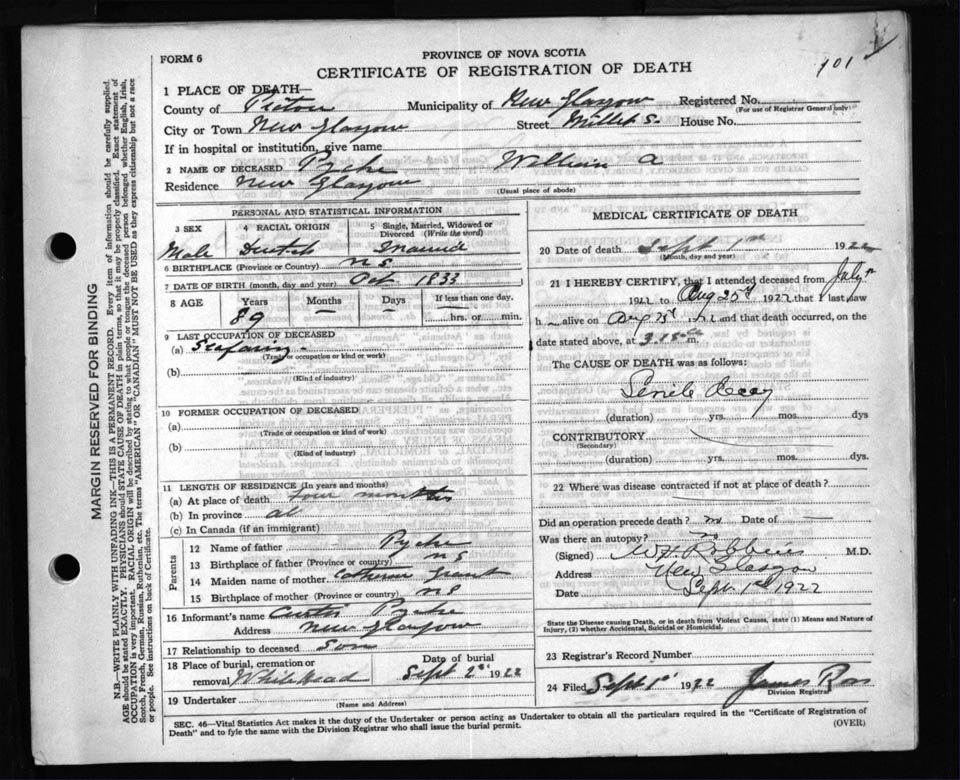 101
FORM 6
PROVINCE OF NOVA SCOTIA
CERTIFICATE OF REGISTRATION OF DEATH
MARGIN RESERVED FOR BINDING
N.B.—WRITE PLAINLY WITH UNFADING INK—THIS IS A PERMANENT RECORD. Every item of information should be carefully supplied.
AGE should be stated EXACTLY. PHYSICIANS should STATE CAUSE OF DEATH in plain terms, so that it may be properly classified. Exact statement of
OCCUPATION is very important. RACIAL ORIGIN will be described by stating to what people or tongue the deceased person belonged whether English, Irish,
Scotch, French, German, Russian, Ruthenian, etc. The terms "AMERICAN" OR "CANADIAN" MUST NOT BE USED as they express citizenship but not a race
or people. See instructions on back of Certificate.
1 PLACE OF DEATH—
County of Pictou Municipality of New Glasgow Registered No.
(For use of Registrar General only)
City or Town New Glasgow Street Millet S. House No.
If in hospital or institution, give name
2 NAME OF DECEASED Pyche William A
Residence New Glasgow
(Usual place of abode)
PERSONAL AND STATISTICAL INFORMATION
3 SEX 4 RACIAL ORIGIN 5 Single, Married, Widowed or Divorced (Write the word)
Male Dutch Married
6 BIRTHPLACE (Province or Country) N S
7 DATE OF BIRTH (month, day and year) Oct 1833
8 AGE Years Months Days If less than one day,
89 — — hrs. or min.
9 LAST OCCUPATION OF DECEASED
(a) Seafaring
(Trade or occupation or kind or work)
(b)
(Kind of industry)
10 FORMER OCCUPATION OF DECEASED
(a)
(Trade or occupation or kind of work)
(b)
(Kind of industry)
11 LENGTH OF RESIDENCE (In years and months)
(a) At place of death four months
(b) In province al
(c) In Canada (if an immigrant)
Parents
12 Name of father Pyche
13 Birthplace of father (Province or country) N S
14 Maiden name of mother Catherine Grant
15 Birthplace of mother (Province or country) N S
16 Informant's name Curtis Pyche
Address New Glasgow
17 Relationship to deceased Son
18 Place of burial, cremation or removal White Head Date of burial Sept 2nd 1922
19 Undertaker
(Name and Address)
MEDICAL CERTIFICATE OF DEATH
20 Date of death Sept 1st 1922
(Month, day and year)
21 I HEREBY CERTIFY, that I attended deceased from July
1922 to Aug 25th 1922 that I last saw
h alive on Aug 25th 1922 and that death occurred, on
date stated above, at 3.15 a m.
The CAUSE OF DEATH was as follows:
Senile Decay
(duration) yrs. mos. dys
CONTRIBUTORY
(Secondary)
(duration) yrs. mos. dys.
22 Where was disease contracted if not at place of death?
Did an operation precede death? no Date of —
Was there an autopsy? no
(Signed) Robbins M.D.
Address New Glasgow
Date Sept. 1st 1922
State the Disease causing Death, or in death from Violent Causes, state (1) Means and Nature of
Injury, (2) whether Accidental, Suicidal or Homicidal.
23 Registrar's Record Number
24 Filed Sept 1st 1922 James Ross
Division Registrar
SEC. 46—Vital Statistics Act makes it the duty of the Undertaker or person acting as Undertaker to obtain all the particulars required in the "Certificate of Registration of
Death" and to fyle the same with the Division Registrar who shall issue the burial permit. (OVER)